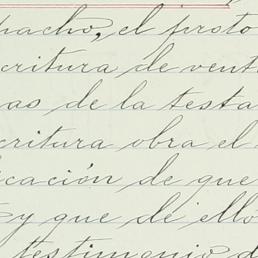 pacho, el proto
critura de vent
as de la testa
critura obra el
icación de que
y que de ello
testimonio d